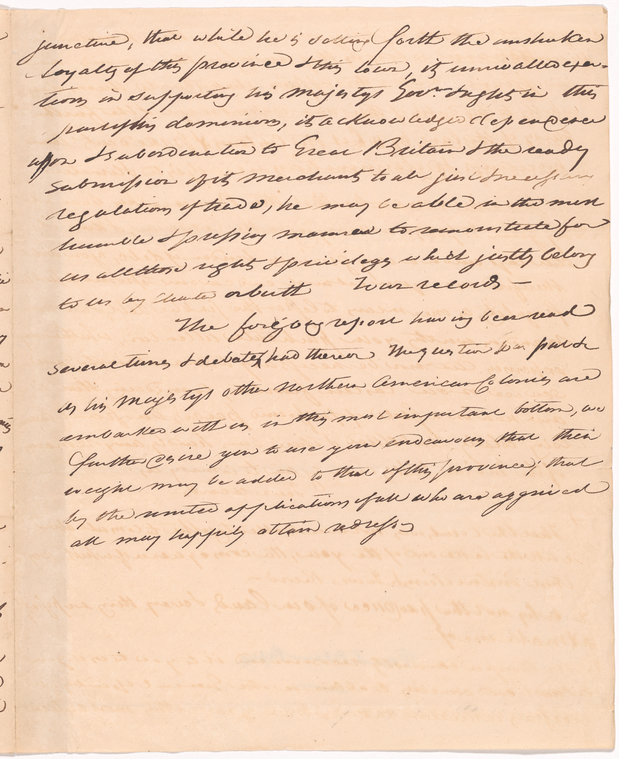 juncture, that while he is setting forth the unshaken
loyalty of this province & this town, its unrivalled exer-
tions in supporting his Majestys Govt. & rights in this
part of his dominion, its acknowledged dependence
upon & subordination to Great Britain & the ready
submission of its merchants to all just & necessary
regulations of trade, he may be able in the most
humble & pressing manner to remonstrate for
us all those rights & priviledges which justly belong
to us by charter or birth Town records —
The forgoing report having been read
several times & debates had thereon the question was put &
As his Majestys other Northern American Colonies are
embarked with us in this most important bottom, we
further desire you to use your endeavours that their
weight may be added to that of this province; that
by the united applications of all who are aggrieved
all may happily obtain redress